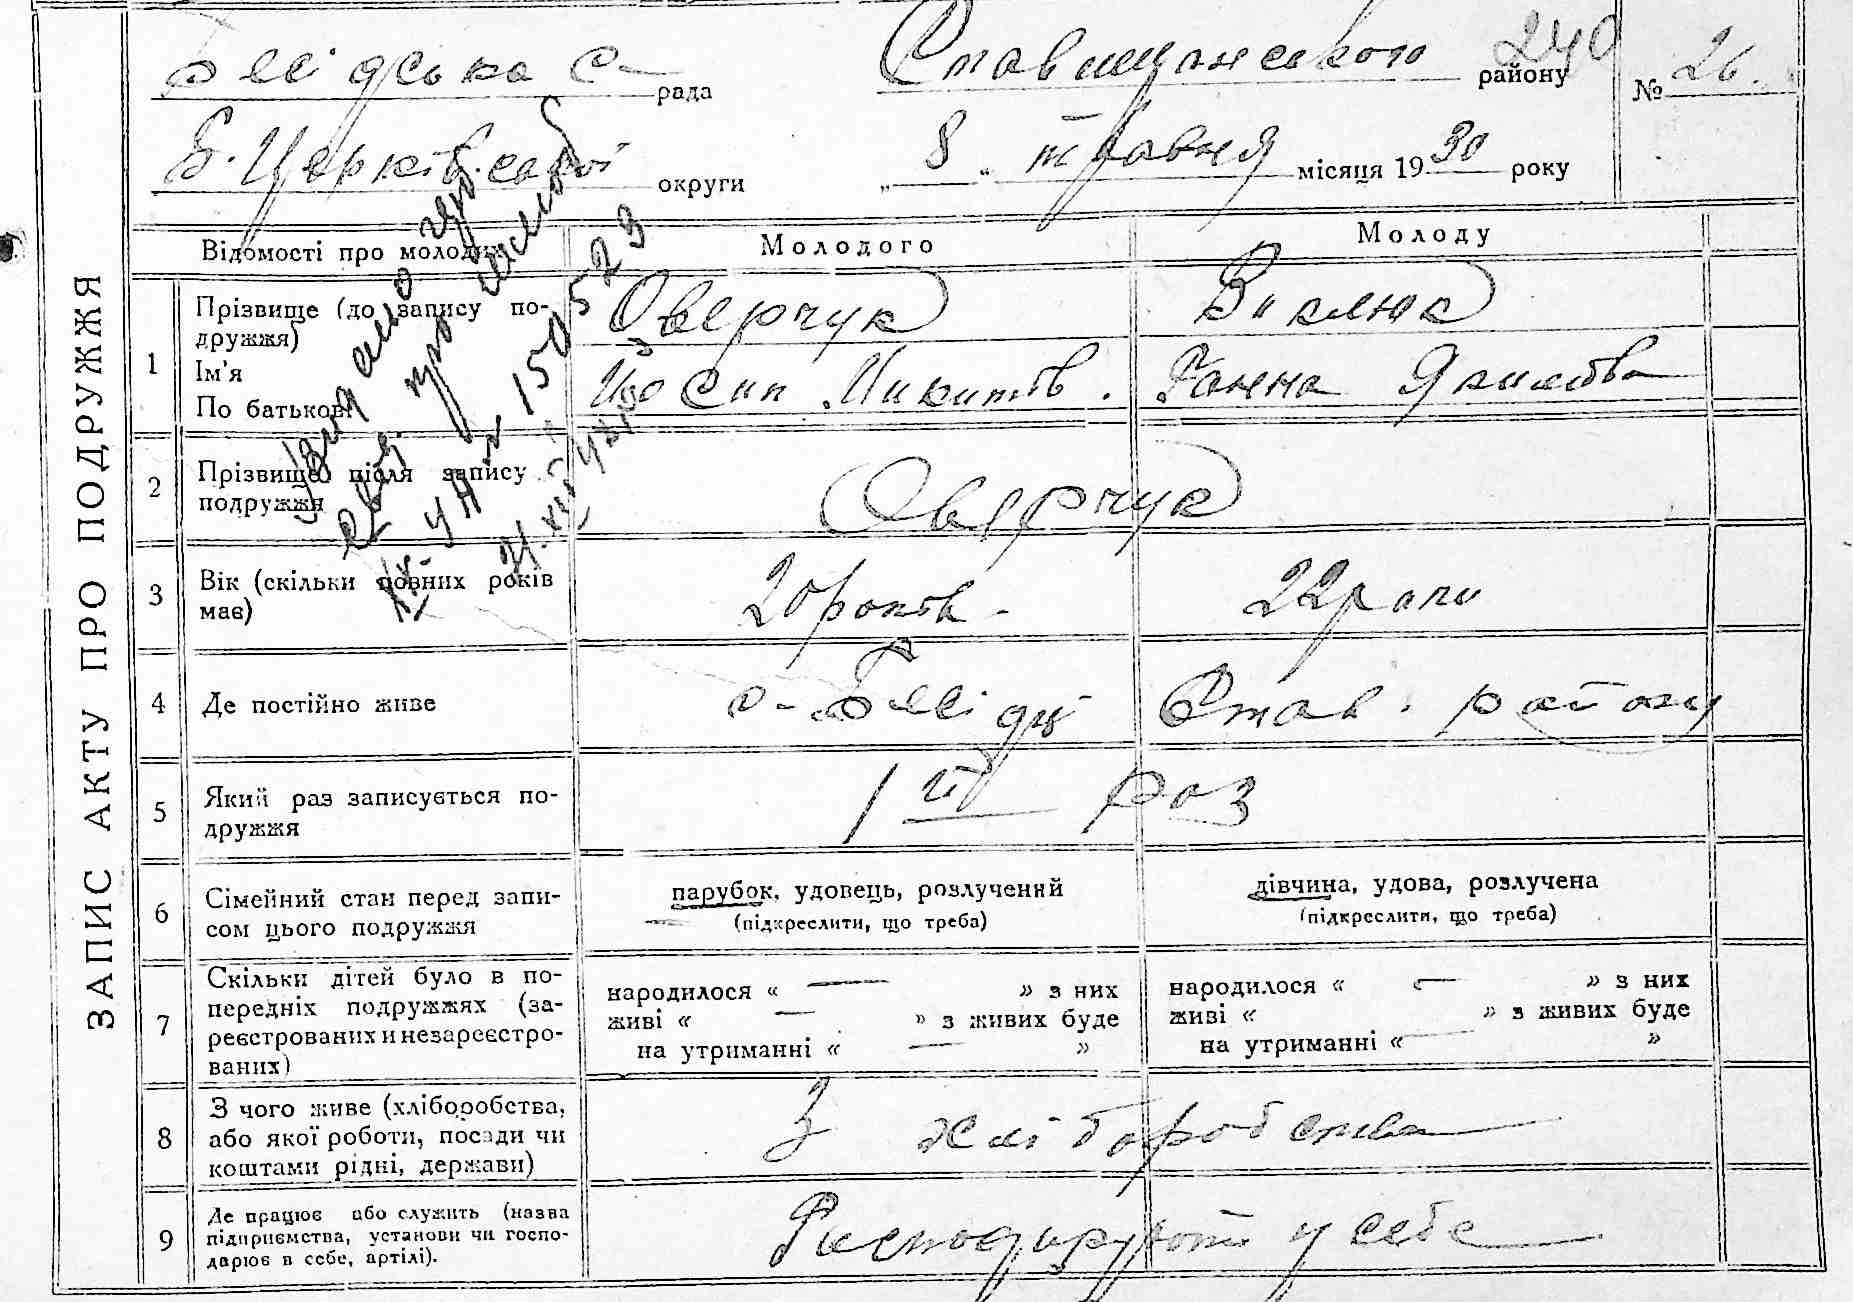 ЗАПИС АКТУ ПРО ПОДРУЖЖЯ
с- рада Ставищанського району 240 № 26.
Б. Церківської округи „ 8 “ травня місяця 1930 року
Відомості про молодих Молодого Молоду
1 Прізвище (до запису подружжя) Оверчук
Ім'я
По батькові Йосип Микитів. Ганна Якимівна
2 Прізвище після запису
подружжя Оверчук
3 Вік (скільки повних років
має) 20 років - 22 роки
4 Де постійно живе с- Став. району
5 Який раз записується по-
дружжя 1ий раз
6 Сімейний стан перед запи-
сом цього подружжя
парубок, удовець, розлучений
(підкреслити, що треба)
дівчина, удова, розлучена
(підкреслити, що треба)
7 Скільки дітей було в по-
передніх подружжях (за-
реєстрованих и незареєстро-
ваних)
народилося « — » з них
живі « — » з живих буде
на утриманні « — »
народилося « — » з них
живі « » з живих буде
на утриманні « — »
8 З чого живе (хліборобства,
або якої роботи, посади чи
коштами рідні, держави)
З хліборобства
9 Де працює або служить (назва
підприємства, установи чи госпо-
дарює в себе, артілі).
у себе
Видано
свід. про
№ 150523